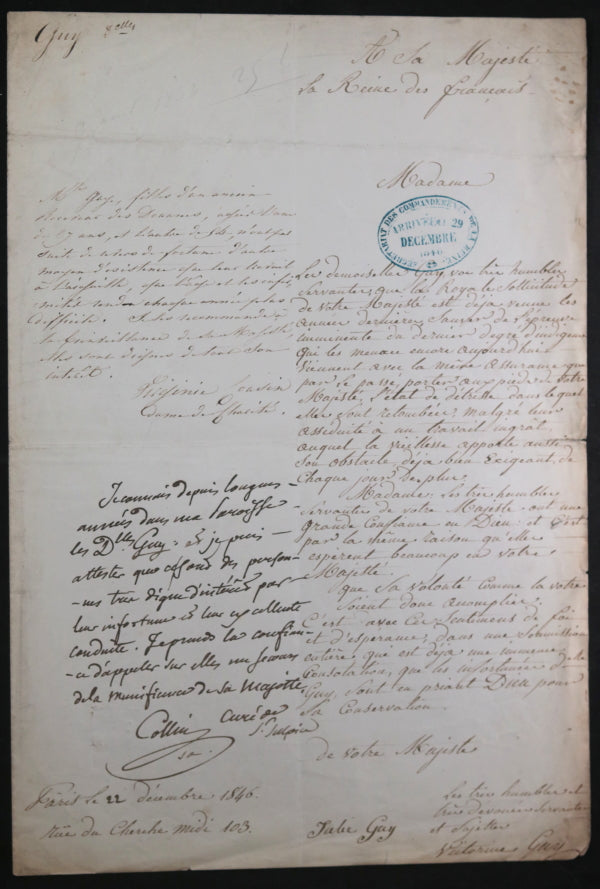 Guy Delles
A Sa Majesté
La Reine des français.
Madame
SECRÉTARIAT DES COMMANDEMENTS DE LA REINE
ARRIVÉE LE 29
DECEMBRE
1846
Mlles Guy, filles d'un ancien
receveur des Douanes, agées l'une
de 57 ans, et l'autre de par
suite de revers de fortune d'autre
moyen d'existence que leur travail
à l'aiguille, que l'age et les
rendent chaque année plus
difficile. Je les recommande à
la bienveillance de sa Majesté,
elles sont dignes de tout son
intérêt.
Virginie Cousin
dame de Charité.
Les demoiselles Guy, vos très humbles
Servantes, que la Royale Sollicitude
de votre Majesté est déjà venue les
années dernières, Sauver de l'épreuve
imminente du dernier degré d'indigence
qui les menace encore aujourd'hui
viennent avec la même assurance que
par le passé, porter aux pieds de Votre
Majesté, l'état de détresse dans lequel
elles sont retombées, malgré leur
assiduité à un travail ingrat,
auquel la vieillesse apporte aussi
son obstacle déjà bien exigeant, de
chaque jour de plus.
Madame, les très humbles
Servantes de votre Majesté ont une
grande Confiance en Dieu: et c'est
par la même raison qu'elles
espèrent beaucoup en votre
Majesté.
que Sa volonté comme la votre
Soient donc accomplies.
C'est avec ces Sentimens de foi
et d'esperance, dans une Soumission
entière, qui est déjà une immense
Consolation, que les infortunées Delles
Guy, sont en priant Dieu pour
Sa Conservation.
Je connais depuis longues
années dans ma paroisse
les Dlles Guy: et je puis
attester que ce sont des person-
-nes très dignes d'intérêt par
leur infortune et leur excellente
conduite. Je prends la confian-
-ce d'appeler sur elles un secours
de la munificence de sa Majesté
Collin curé de
St Sulpice
de Votre Majesté
Paris le 22 décembre 1846.
Rue du Cherche midi 103.
Les très humbles et
très devouées Servantes
et Sujettes
Julie Guy
Victorine Guy